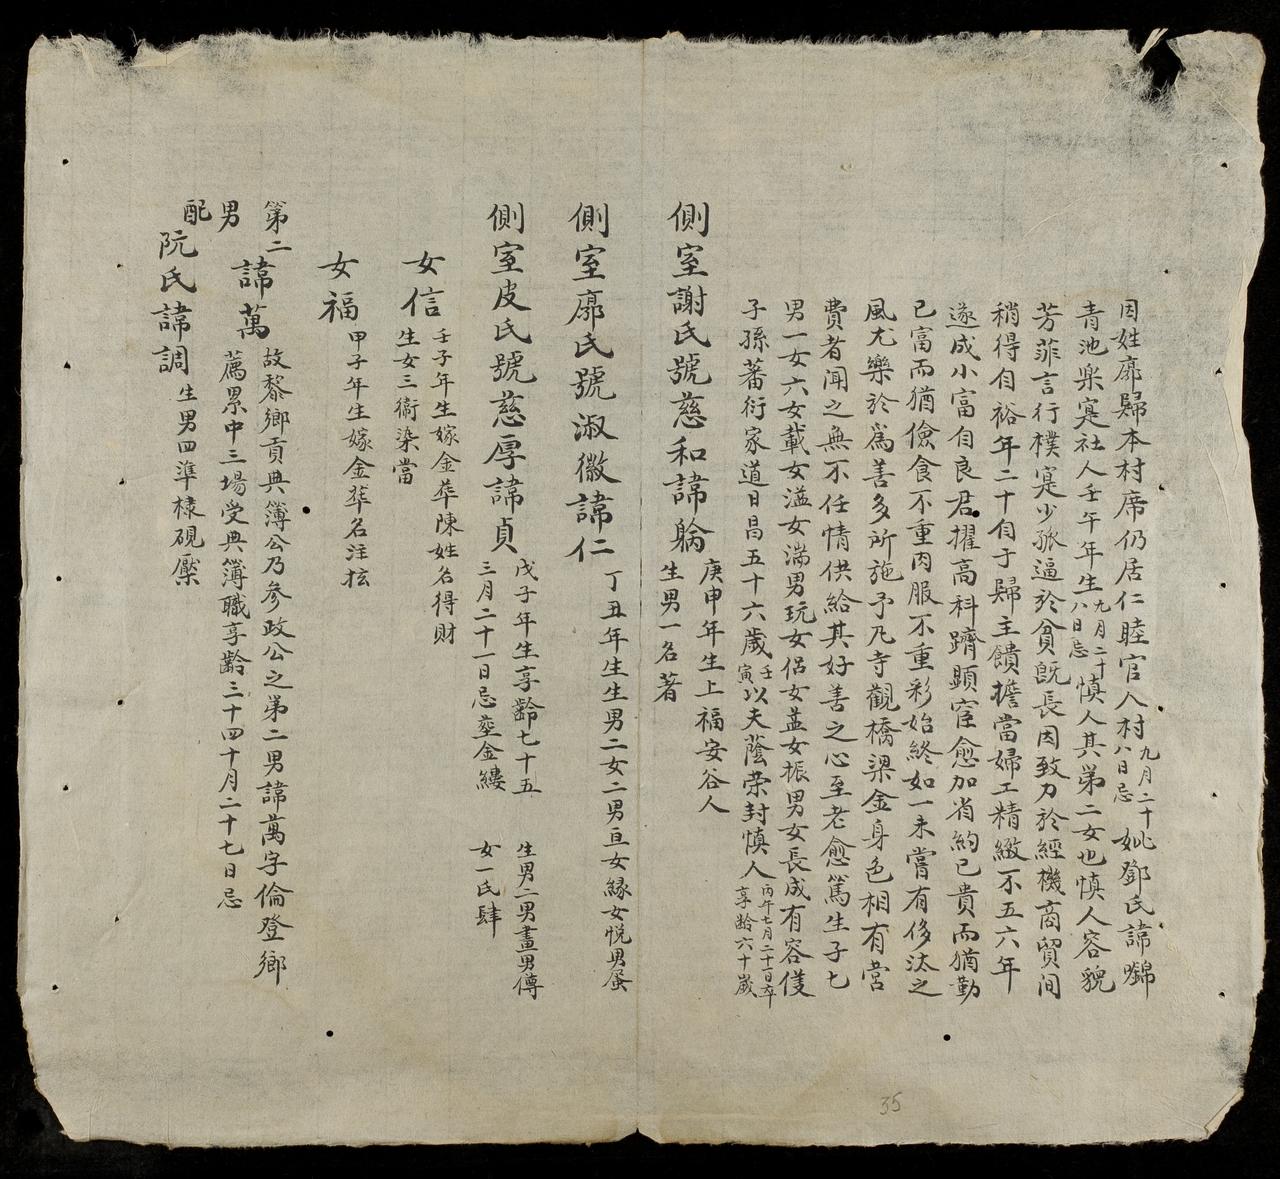 因姓廓歸本村席仍居仁睦官人村九月二十八日忌妣鄧氏諱
青池寔社人壬午年生九月二十八日忌慎人其第二女也慎人容貌
芳菲言行樸寔少孤逼於貧既長因致力於經機商貿间
稍得自裕年二十自于歸主饋擔當婦工精緻不五六年
遂成小富自良君擢高科躋顯宦愈加省約已貴而猶勤
已富而猶儉食不重肉服不重彩始終如一未嘗有侈汰之
風尤樂於為善多所施予凡寺觀橋梁金身色相有营
費者闻之無不任情供給其好善之心至老愈篤生子七
男一女六女載女溢女湍男玩女侣女女振男女長成有容僅
子孫蕃衍家道日昌五十六歲壬寅以夫蔭荣封慎人丙午七月二十一日卒享龄六十歲
側室謝氏號慈和諱 庚申年生上福安谷人
生男一名著
側室廓氏號淑徽諱仁 丁丑年生生男二女二男亘女緣女悦男蛋
側室皮氏號慈厚諱貞 戊子年生享齡七十五
三月二十一日忌塟金縷
生男二男畫男傳
女一氏肆
女信 壬子年生嫁金華陳姓名得財
生女三衛染當
女福 甲子年生嫁金華名注
第二男諱萬 故黎鄉貢典簿公乃参政公之第二男諱萬字倫登鄉
薦累中三場受典簿職享齡三十四十月二十七日忌
配阮氏諱調 生男四準棣硯
35